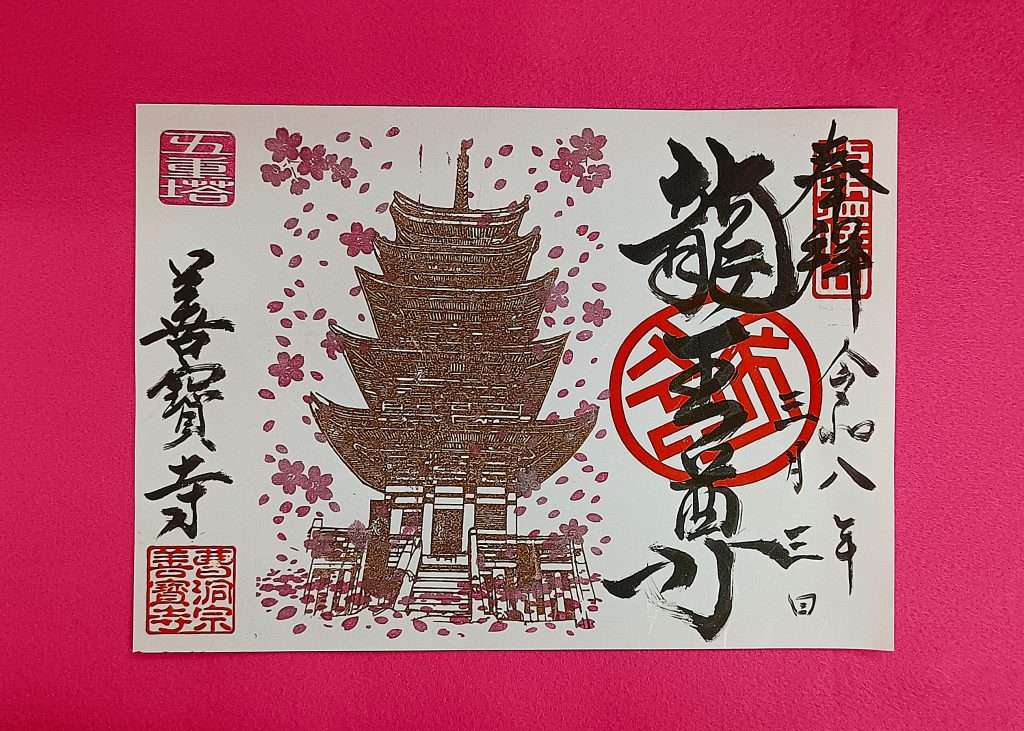 奉拝
令和八年
三月三日
龍王尊
五重塔
善寳寺
曹洞宗
善寳寺